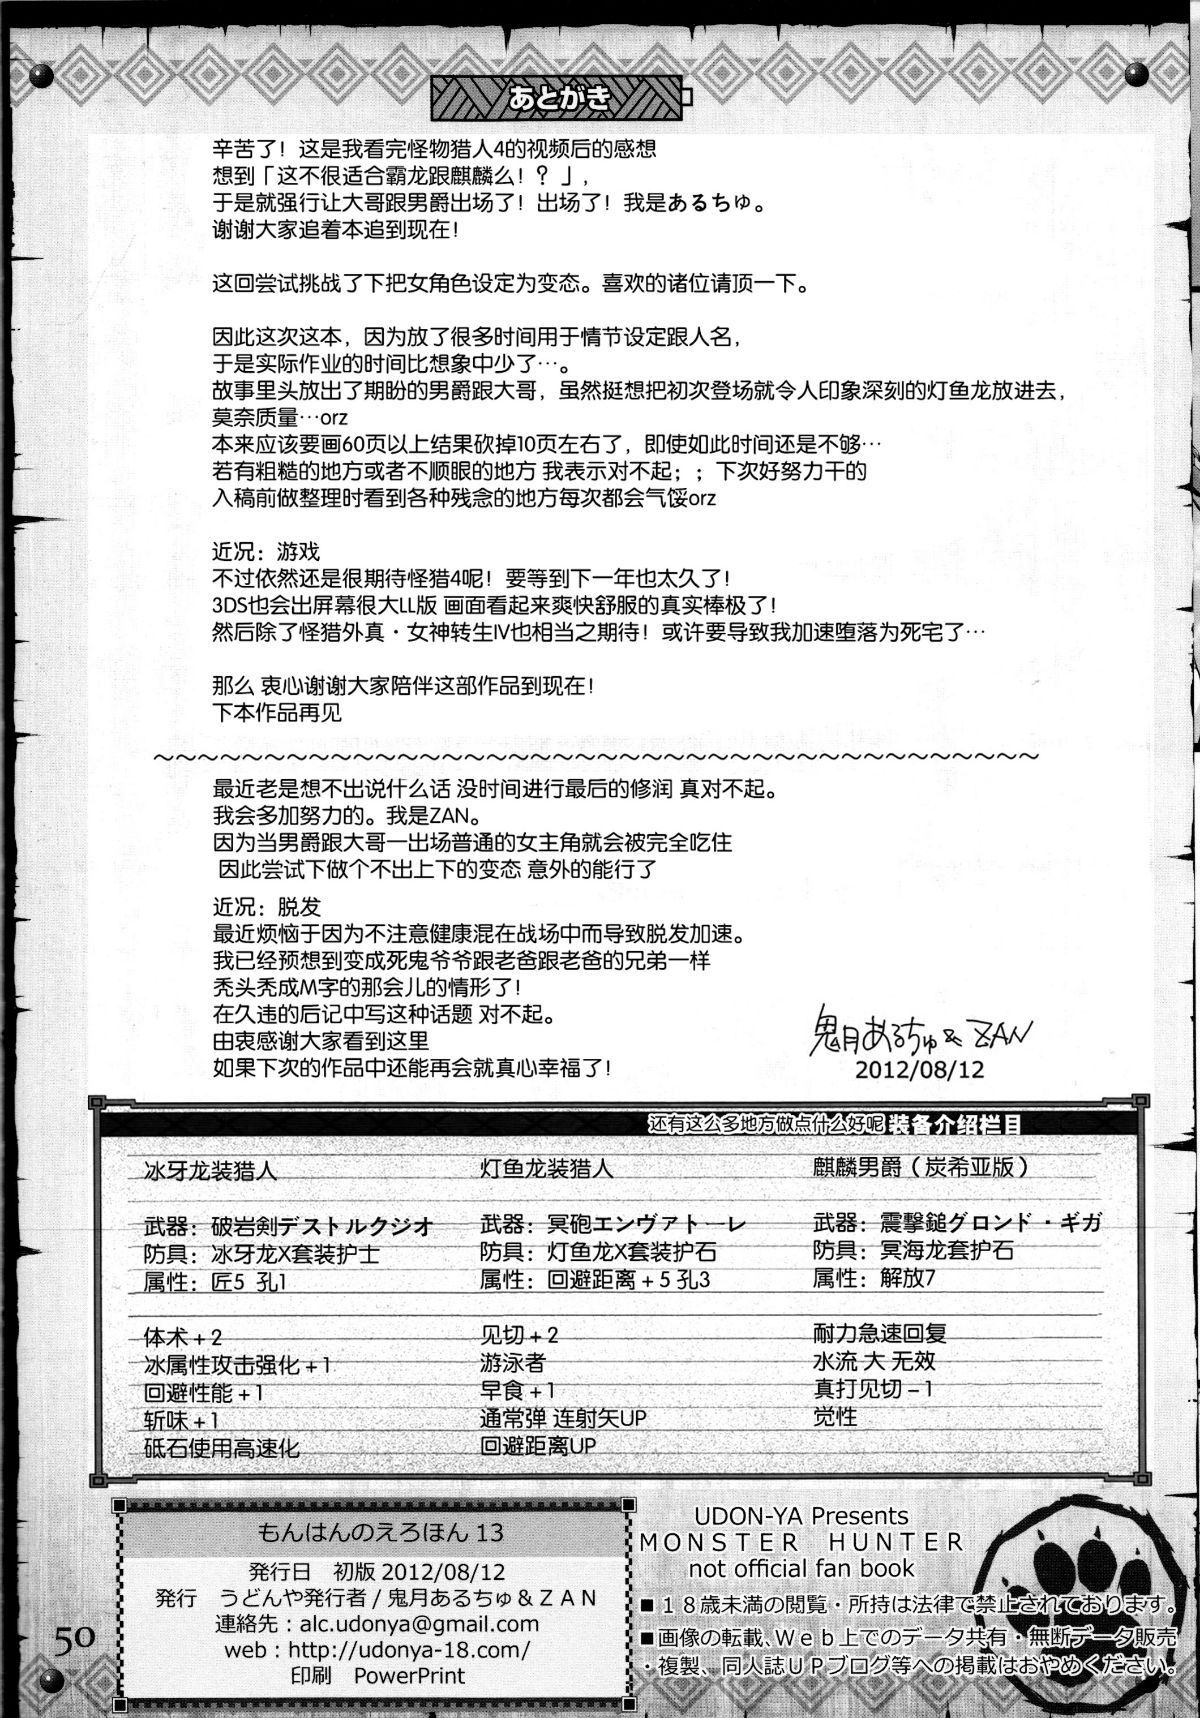 あとがき
辛苦了！这是我看完怪物猎人4的视频后的感想
想到「这不很适合霸龙跟麒麟么！？」，
于是就强行让大哥跟男爵出场了！出场了！我是あるちゅ。
谢谢大家追着本追到现在！
这回尝试挑战了下把女角色设定为变态。喜欢的诸位请顶一下。
因此这次这本，因为放了很多时间用于情节设定跟人名，
于是实际作业的时间比想象中少了…。
故事里头放出了期盼的男爵跟大哥，虽然挺想把初次登场就令人印象深刻的灯鱼龙放进去，
莫奈质量…orz
本来应该要画60页以上结果砍掉10页左右了，即使如此时间还是不够…
若有粗糙的地方或者不顺眼的地方 我表示对不起；；下次好努力干的
入稿前做整理时看到各种残念的地方每次都会气馁orz
近况：游戏
不过依然还是很期待怪猎4呢！要等到下一年也太久了！
3DS也会出屏幕很大LL版 画面看起来爽快舒服的真实棒极了！
然后除了怪猎外真・女神转生IV也相当之期待！或许要导致我加速堕落为死宅了…
那么 衷心谢谢大家陪伴这部作品到现在！
下本作品再见
～～～～～～～～～～～～～～～～～～～～～～～～～～～～～～～～～～～～～～～～
最近老是想不出说什么话 没时间进行最后的修润 真对不起。
我会多加努力的。我是ZAN。
因为当男爵跟大哥一出场普通的女主角就会被完全吃住
因此尝试下做个不出上下的变态 意外的能行了
近况：脱发
最近烦恼于因为不注意健康混在战场中而导致脱发加速。
我已经预想到变成死鬼爷爷跟老爸跟老爸的兄弟一样
秃头秃成M字的那会儿的情形了！
在久违的后记中写这种话题 对不起。
由衷感谢大家看到这里
如果下次的作品中还能再会就真心幸福了！
鬼月あるちゅ& ZAN
2012/08/12
还有这么多地方做点什么好呢 装备介绍栏目
冰牙龙装猎人
武器：破岩剣デストルクジオ
防具：冰牙龙X套装护士
属性：匠5 孔1
体术＋2
冰属性攻击强化＋1
回避性能＋1
斩味＋1
砥石使用高速化
灯鱼龙装猎人
武器：冥砲エンヴァトーレ
防具：灯鱼龙X套装护石
属性：回避距离＋5 孔3
见切＋2
游泳者
早食＋1
通常弹 连射矢UP
回避距离UP
麒麟男爵（炭希亚版）
武器：震撃鎚グロンド・ギガ
防具：冥海龙套护石
属性：解放7
耐力急速回复
水流 大 无效
真打见切－1
觉性
もんはんのえろほん 13
発行日　初版 2012/08/12
発行　うどんや発行者 / 鬼月あるちゅ＆ＺＡＮ
連絡先：alc.udonya@gmail.com
web：http://udonya-18.com/
印刷　PowerPrint
UDON-YA Presents
MONSTER HUNTER
not official fan book
■１８歳未満の閲覧・所持は法律で禁止されております。
■画像の転載、Ｗｅｂ上でのデータ共有・無断データ販売
・複製、同人誌ＵＰブログ等への掲載はおやめください。
50